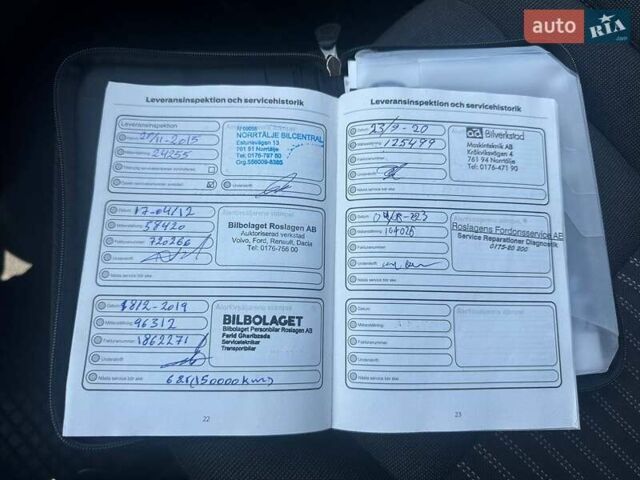 auto RIA
.com
Leveransinspektion och servicehistorik
Leveransinspektion
Datum
-2015
Mätarställning 24255
NORRTÄLJE BILCENTRAL
Estunavägen 13
761 51 Norrtälje
Tel: 0176-797 50
Org.556009-8385
Underskrift
Datum 17-04/12
Mätarställning 58420
Fakturanummer 720266
Underskrift
Nästa service bör ske:
Bilbolaget Roslagen AB
Auktoriserad verkstad
Volvo, Ford, Renault, Dacia
Tel: 0176-756 00
Datum 1812-2019
Mätarställning 96312
Fakturanummer 1862271
Underskrift
Nästa service bör ske: (150000km)
BILBOLAGET
Bilbolaget Personbilar Roslagen AB
Farid Gharibzada
Servicetekniker
Transportbilar
22
Leveransinspektion och servicehistorik
Datum 23/9-20
Mätarställning 125499
Fakturanummer
Underskrift
Nästa service bör ske:
ad Bilverkstad
Maskinteknik AB
Kråkviksvägen 4
761 94 Norrtälje
Tel: 0176-471 90
Datum
Mätarställning
Fakturanummer
Underskrift
Nästa service bör ske:
Roslagens Fordonsservice AB
Service Reparationer Diagnostik
0175-20 200
Datum
Mätarställning
Fakturanummer
Underskrift
Nästa service bör ske:
23